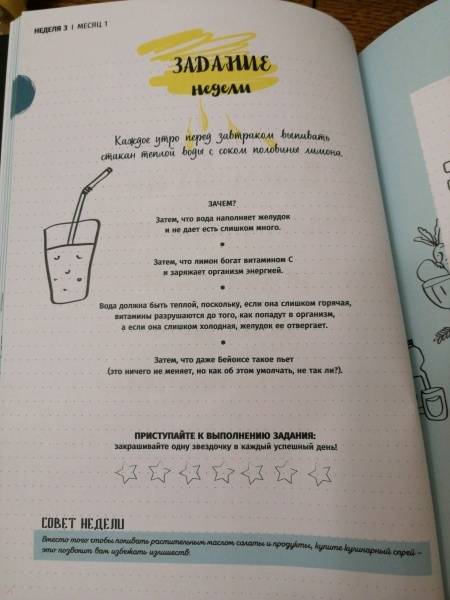 НЕДЕЛЯ 3 | МЕСЯЦ 1
ЗАДАНИЕ
недели
Каждое утро перед завтраком выпивать
стакан теплой воды с соком половины лимона.
ЗАЧЕМ?
Затем, что вода наполняет желудок
и не дает есть слишком много.
•
Затем, что лимон богат витамином С
и заряжает организм энергией.
•
Вода должна быть теплой, поскольку, если она слишком горячая,
витамины разрушаются до того, как попадут в организм,
а если она слишком холодная, желудок ее отвергает.
•
Затем, что даже Бейонсе такое пьет
(это ничего не меняет, но как об этом умолчать, не так ли?).
ПРИСТУПАЙТЕ К ВЫПОЛНЕНИЮ ЗАДАНИЯ:
закрашивайте одну звездочку в каждый успешный день!
СОВЕТ НЕДЕЛИ
Вместо того чтобы поливать растительным маслом салаты и продукты, купите кулинарный спрей –
это позволит вам избежать излишеств.